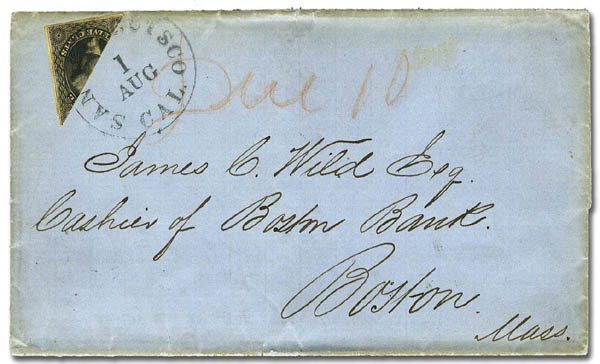 CISCO
1
AUG
SAN CAL.
Due 10
James C. Wild Esq.
Cashier of Boston Bank.
Boston.
Mass.